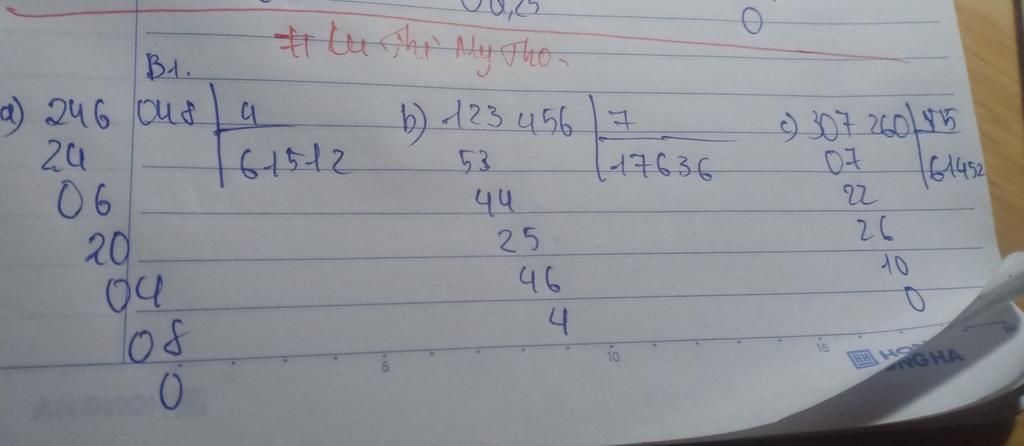 00,25 0
# Lu Thi My Tho.
B1.
a) 246 048 4 b) 123 456 7 c) 307 260 5
24 61512 53 17636 07 61452
06 44 22
20 25 26
04 46 10
08 4 0
0
5 10 15
HONG HA